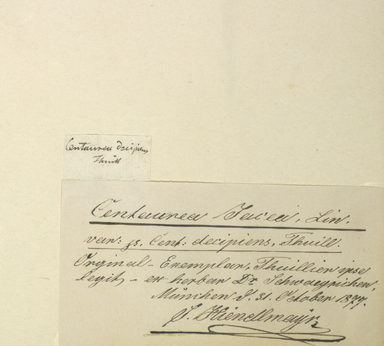 Centaurea decipiens
Thuill
Centaurea Jacea, Lin.
var: β. Cent. decipiens, Thuill.
Orginal-Exemplar: Thuillier ipse
legit - ex herbar Dr. Schwaegrichen,
München d. 31. October 1877.